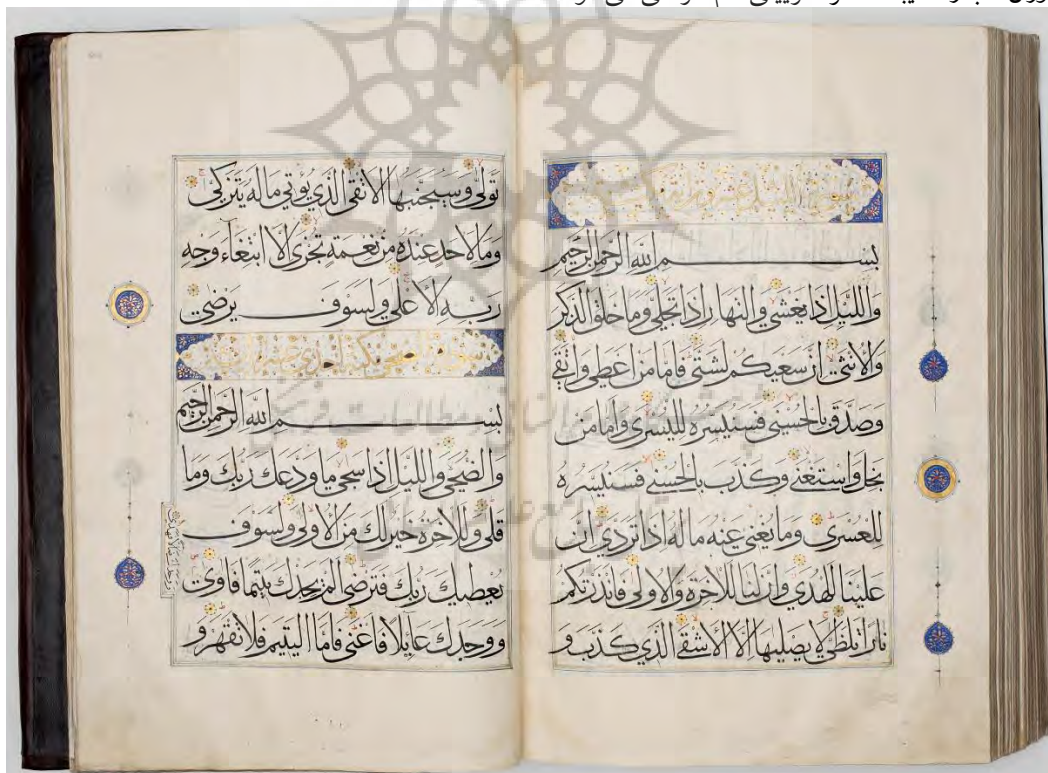 بِسْمِ اللهِ الرَّحْمٰنِ الرَّحِيمِ
وَاللَّيْلِ اِذَا يَغْشَى وَالنَّهَارِ اِذَا تَجَلَّى وَمَا خَلَقَ الذَّكَرَ
وَالْاُنْثَى اِنَّ سَعْيَكُمْ لَشَتَّى فَاَمَّا مَنْ اَعْطَى وَاتَّقَى
وَصَدَّقَ بِالْحُسْنَى فَسَنُيَسِّرُهُ لِلْيُسْرَى وَاَمَّا مَنْ
بَخِلَ وَاسْتَغْنَى وَكَذَّبَ بِالْحُسْنَى فَسَنُيَسِّرُهُ
لِلْعُسْرَى وَمَا يُغْنِي عَنْهُ مَالُهُ اِذَا تَرَدَّى اِنَّ
عَلَيْنَا لَلْهُدَى وَاِنَّ لَنَا لَلْاٰخِرَةَ وَالْاُولَى فَاَنْذَرْتُكُمْ
نَارًا تَلَظَّى لَا يَصْلٰيهَا اِلَّا الْاَشْقَى الَّذِي كَذَّبَ وَ
تَوَلَّى وَسَيُجَنَّبُهَا الْاَتْقَى الَّذِي يُؤْتِي مَالَهُ يَتَزَكَّى
وَمَا لِاَحَدٍ عِنْدَهُ مِنْ نِعْمَةٍ تُجْزَى اِلَّا ابْتِغَاءَ وَجْهِ
رَبِّهِ الْاَعْلَى وَلَسَوْفَ يَرْضَى
بِسْمِ اللهِ الرَّحْمٰنِ الرَّحِيمِ
وَالضُّحَى وَاللَّيْلِ اِذَا سَجَى مَا وَدَّعَكَ رَبُّكَ وَمَا
قَلَى وَلَلْاٰخِرَةُ خَيْرٌ لَكَ مِنَ الْاُولَى وَلَسَوْفَ
يُعْطِيكَ رَبُّكَ فَتَرْضَى اَلَمْ يَجِدْكَ يَتِيمًا فَاٰوَى
وَوَجَدَكَ عَايِلًا فَاَغْنَى فَاَمَّا الْيَتِيمَ فَلَا تَقْهَرْ وَ